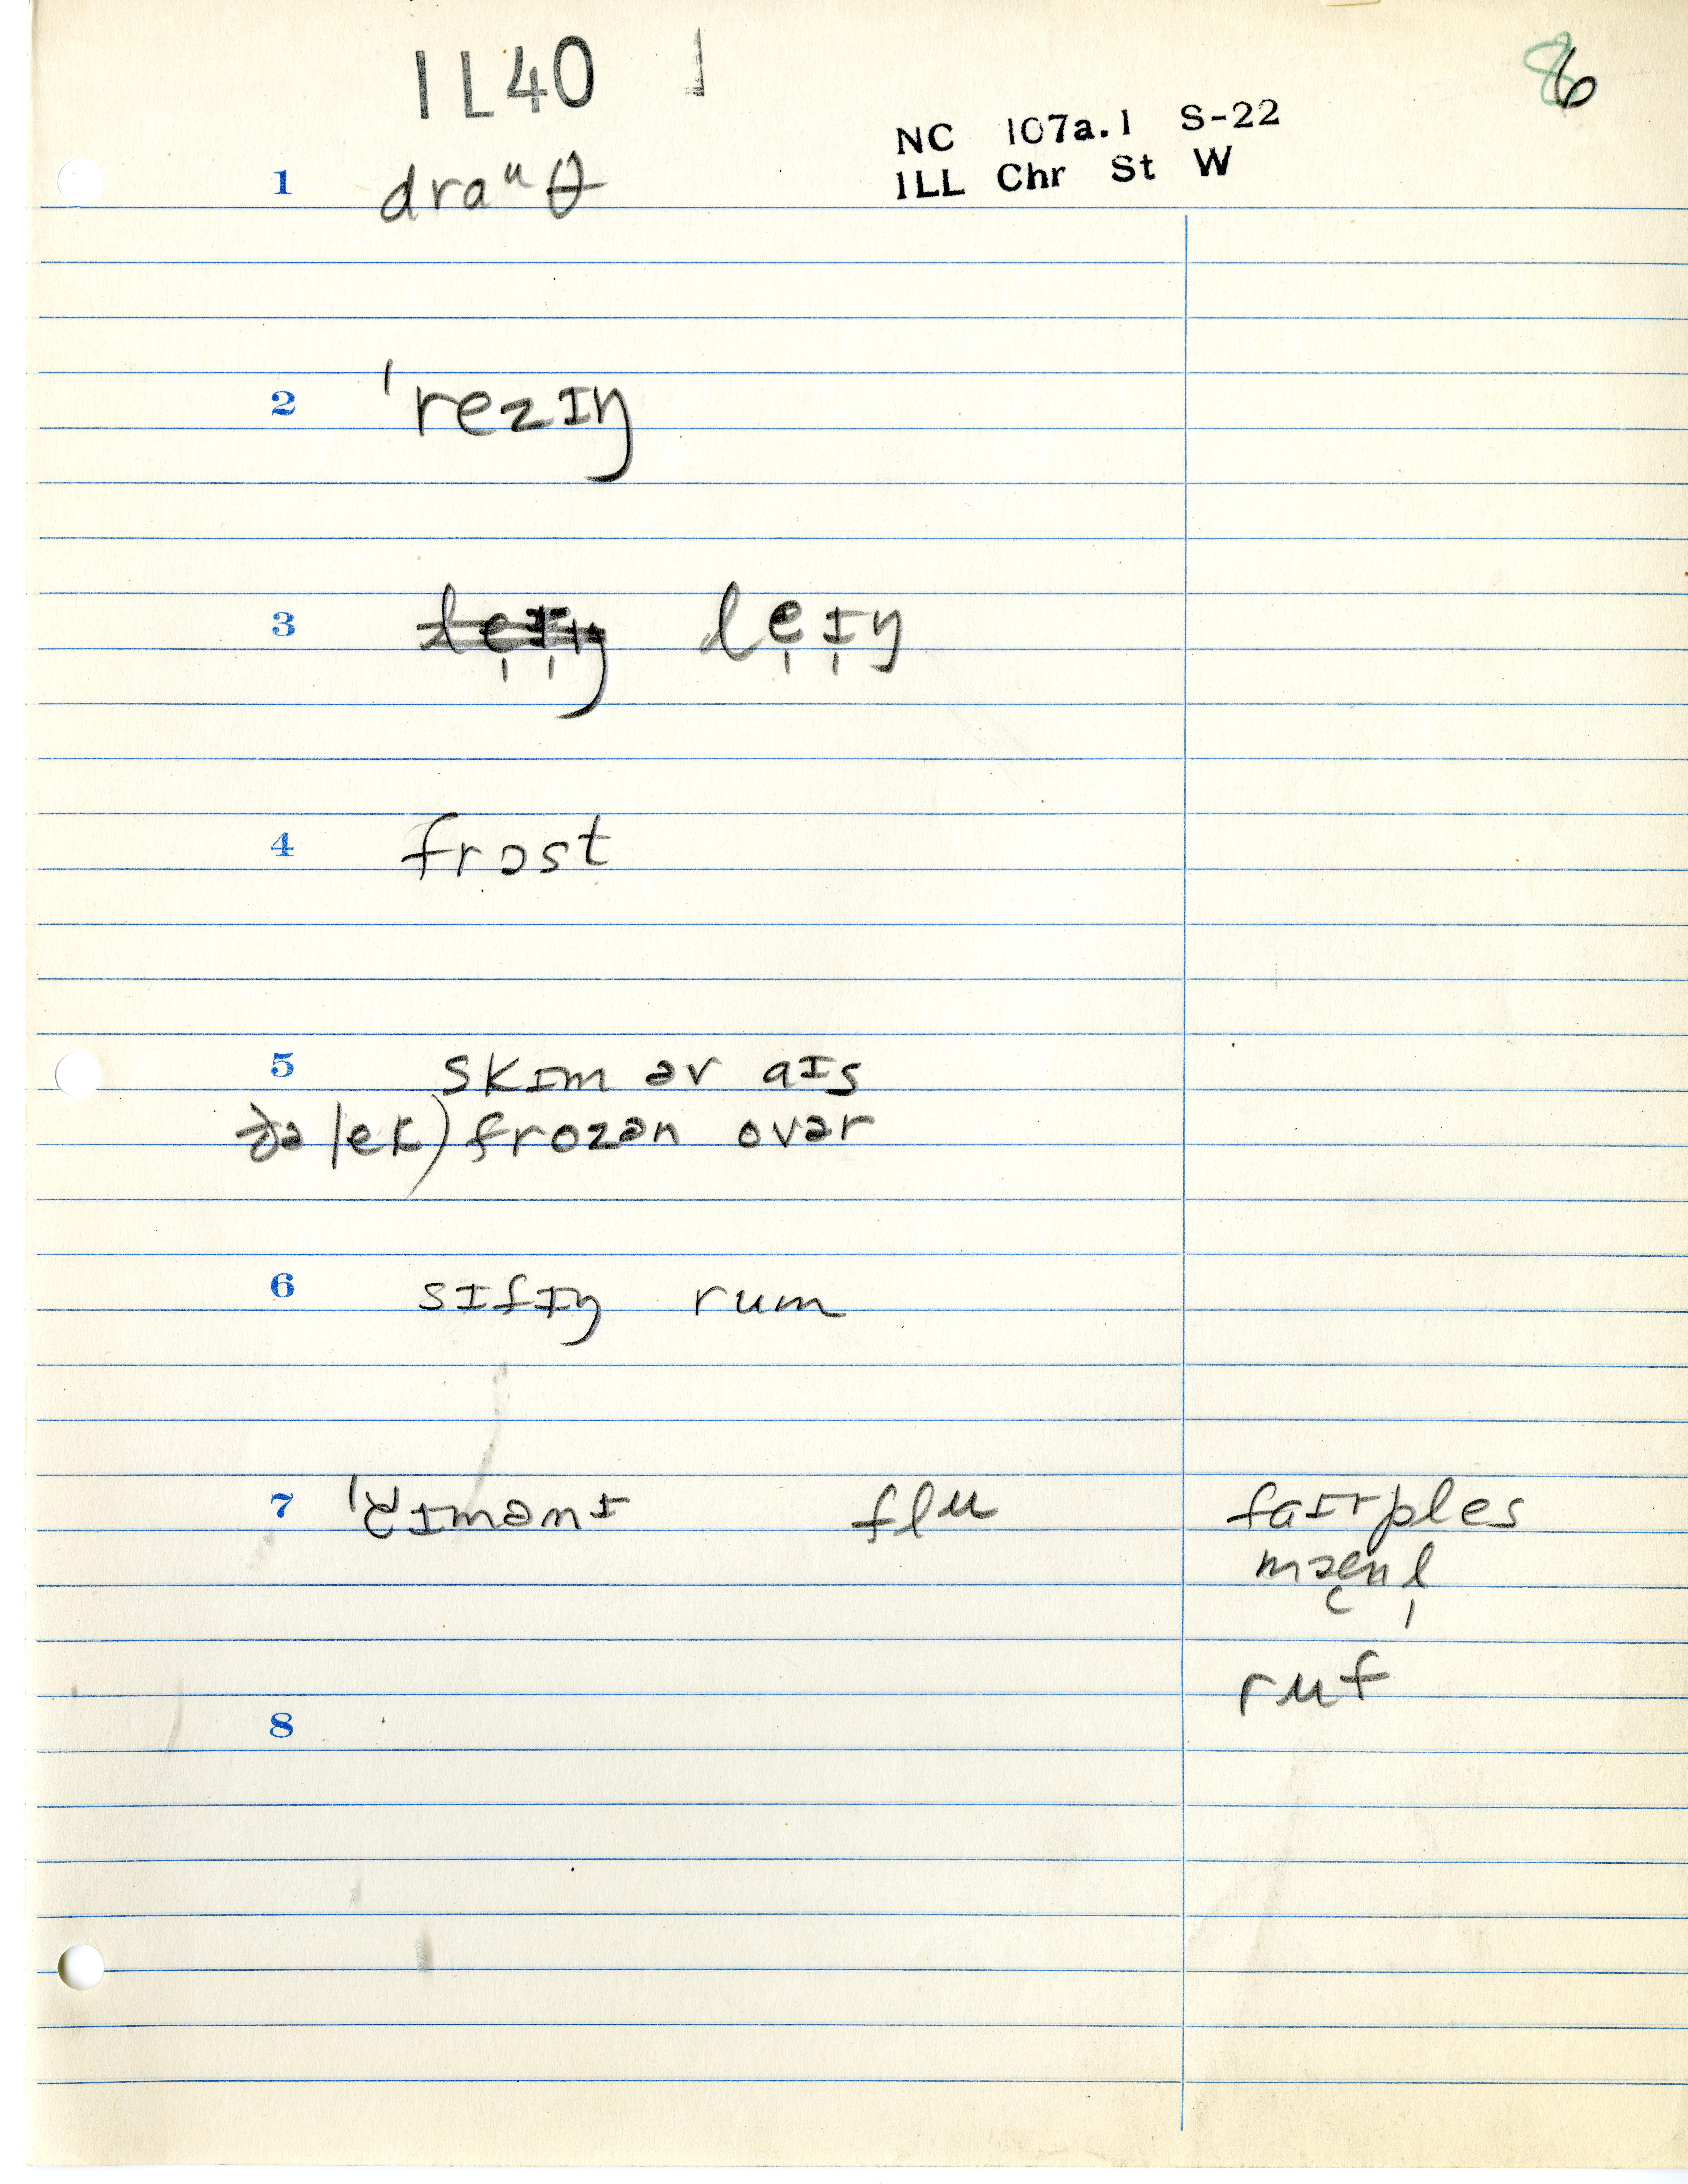 IL40 1 86
NC 107a.1 S-22
ILL Chr St W
1 draᵘθ
2 ˈrezɪŋ
3 le̩ɪ̩ŋ
4 frɔst
5 skɪm əv aɪs
ðə lek) frozən ovər
6 sɪtɪŋ rum
7 flu faɪrples
mæn̯l̩
ruf
8